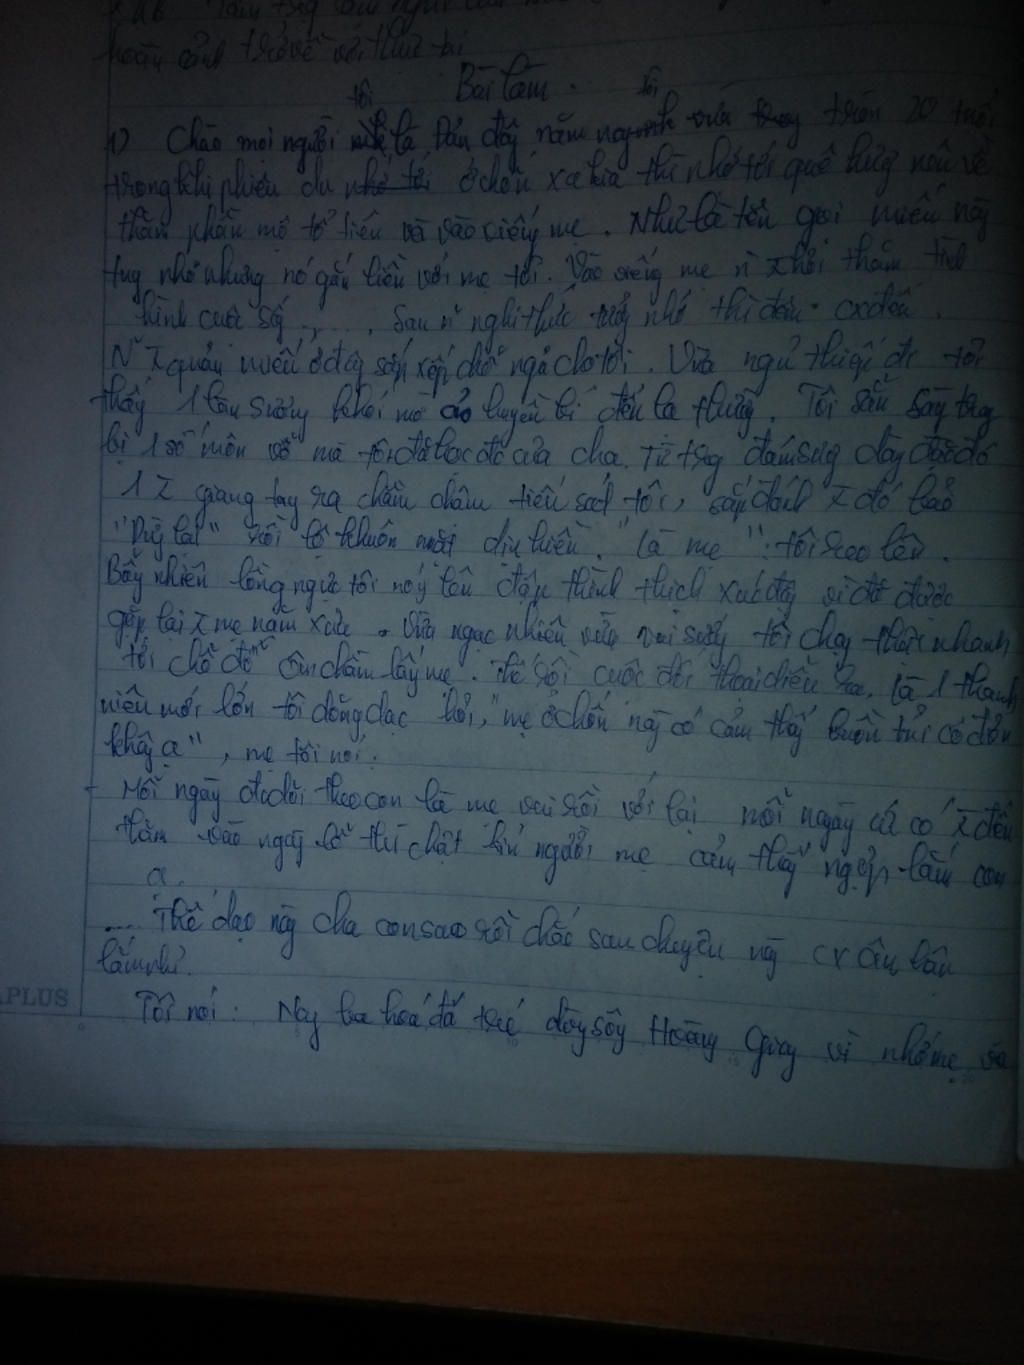 hoàn cảnh trở về với thực tại
Bài làm.
tôi tôi
1) Chào mọi người là Đản đây năm nay vừa tròn 20 tuổi
trong khi phiêu du nhớ tới ở chốn xa kia thì nhớ tới quê hương nên về
thăm phần mộ tổ tiên và vào viếng mẹ. Như là tên gọi miếu này
tuy nhỏ nhưng nó gắn liền với mẹ tôi. Vào viếng mẹ hỏi thăm tình
hình cuộc sống ....., sau nghi thức tưởng nhớ thì đêm cx đến.
quản miếu ở đây sắp xếp chỗ ngả cho tôi. Vừa ngủ thiếp đi tôi
thấy 1 làn sương khói mờ ảo huyền bí đến lạ thường. Tôi sẵn sàng
bị 1 số môn võ mà tôi đã học đc của cha. Từ trg đám sương dày đặc đó
1 giang tay ra chầm chậm tiến sát tôi, đó bảo
"Dừng lại" rồi lộ khuôn mặt dịu hiền. "Là mẹ": tôi reo lên.
Bỗng nhiên lồng ngực tôi nóng lên đập thình thịch xúc động vì đã được
gặp lại mẹ năm xưa. Vừa ngạc nhiên vừa vui sướng tôi chạy thật nhanh
tới chỗ đó ôm chầm lấy mẹ. Thế rồi cuộc đối thoại diễn ra. Là 1 thanh
niên mới lớn tôi dõng dạc hỏi, "mẹ ở chốn này có cảm thấy buồn tủi cô đơn
không ạ", mẹ tôi nói:
- Mỗi ngày đc dõi theo con là mẹ vui rồi với lại mỗi ngày cứ có đến
thăm vào ngày lễ thì chật kín người mẹ cảm thấy ngợp lắm con
ạ.
.... Thế dạo này cha con sao rồi chắc sau chuyện này cx ân hận
lắm nhỉ.
APLUS
Tôi nói: Nay ba hoá đá trước dòng sông Hoàng Giang vì nhớ mẹ và